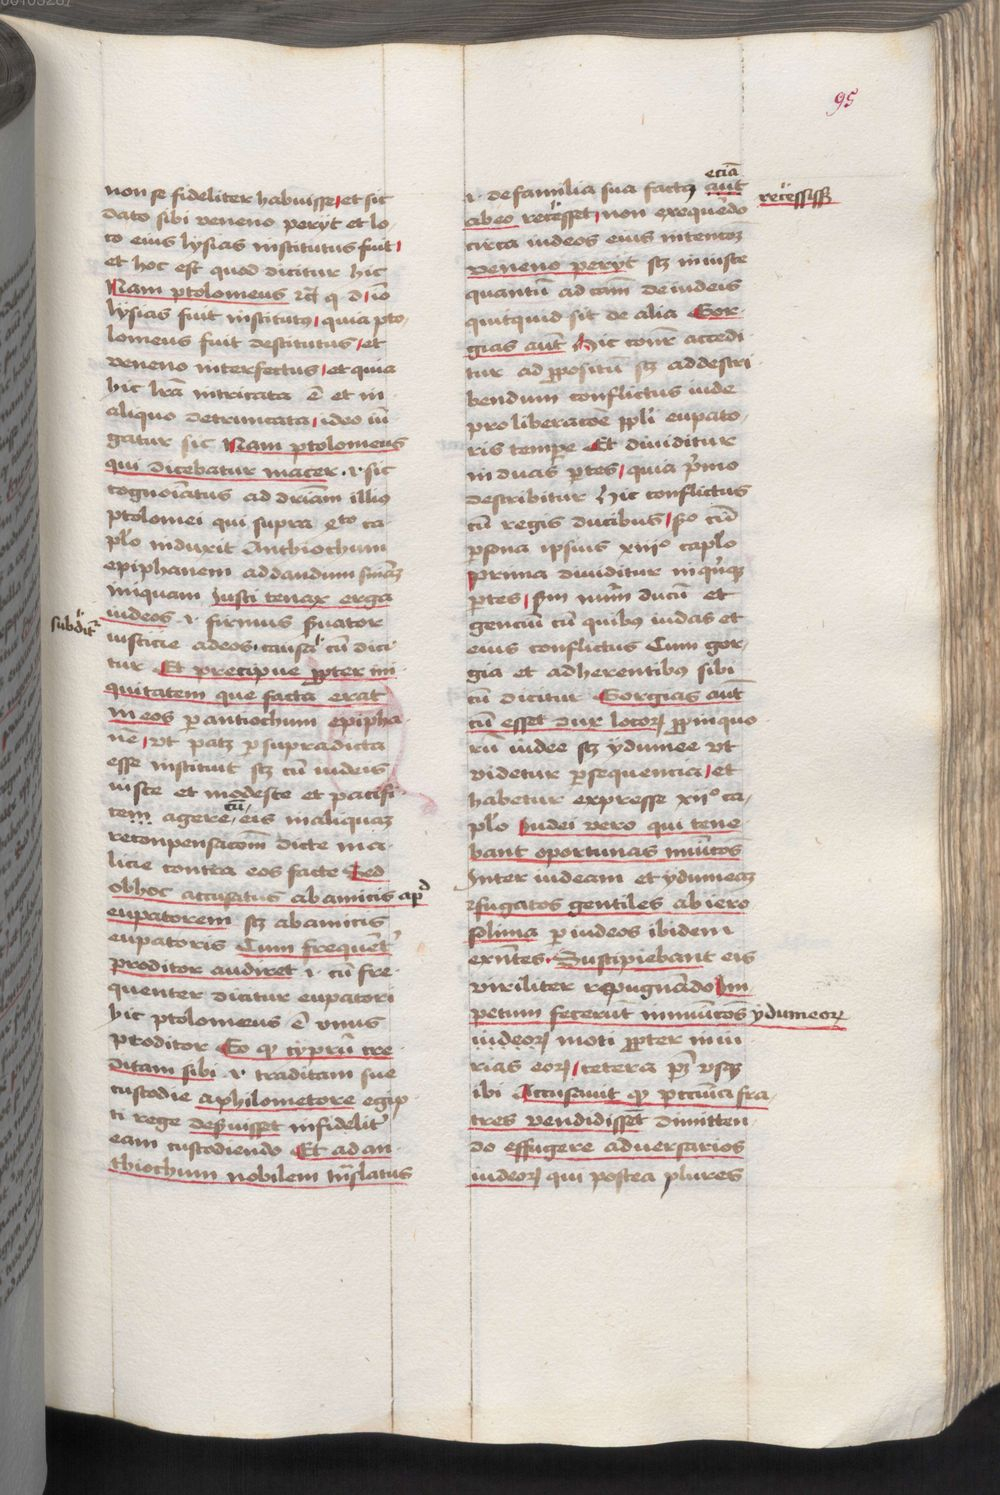 95
non se fideliter habuisse et sic
dato sibi veneno peryt et lo
co eius lysias institutus fuit
et hoc est quod dicitur hic
Nam ptolomeus
lysias fuit institutꝰ quia pto
lomeus fuit destitutus et
veneno interfectus et quia
hic lr̄a intricata ē et in
aliquo detruncata ideo iū
gatur sic Nam ptolomeus
qui dicebatur macer .i. sic
cognoīatus ad dr̄iam illiꝰ
ptolomei qui supra
pl̓o induxit Anthiochum
epiphanem ad dandum
iniquam iusti tenax erga
iudeos .i. firmus
iusticie ad eos causa cū dici
tur Et precipue ꝓpter ini
quitatem que facta erat
in eos ꝑ antiochum epipha
nē vt patꝫ ꝑ supradicta
esse instituit sꝫ cū iudeis
iuste et modeste et pacifi
tem agere cū eis in aliquaꝫ
recompensacōm dicte ma
licie contra eos facte Sed
ob hoc accusatus ab amicis apd
eupatorem sꝫ ab amicis
eupatoris Cum frequēt̓
proditor audiret .i. cū fre
quenter dicitur eupatori
hic ptolomeus ē vnus
proditor Eo ꝙ cyprū cre
ditam sibi .i. traditam sue
custodie a philometore egip
ti rege des̓uisset infidelit̓
eam custodiendo Et ad an
thiochum nobilem tn̄slatus
.i. de familia sua factꝰ aut̄
eciā
ab eo recessisset non exequēdo
recessisset
circa iudeos eius intentoꝫ
veneno peryt sꝫ iniuste
quantū ad cām de iudeis
quitquid sit de alia Gor
gias aut̄ Hic accedi
tur ad ꝓpositū sꝫ ad descri
bendum conflictus iude
pro liberacōe pp̄li eupato
ris tempe Et diuiditur
in duas ꝑtes quia pͥmo
describitur hic conflictus
cū regis ducibus so cū
ꝑsona ipsius xiiiº capl̓o
prima diuiditur in
ꝑtes s̄m nūm ducū et
genciū cū quibꝰ iudas et
eius conflictus Cum gor
gia et adherentibꝰ sibi
cū dicitur Gorgias aut̄
cū esset dux locoꝝ ꝓpinquo
rū iudee sꝫ ydumee vt
videtur ꝑ sequencia et
habetur expresse xiiº ca
pl̓o Iudei vero qui tene
bant oportunas mūicōs
Inter iudeam et ydumeaꝫ
fugatos gentiles ab iero
solima ꝑ iudeos ibidem
exn̄tes Suscipiebant eis
viriliter repugnādo Im
petum fecerūt in mūicōs ydumeoꝝ
iudeoꝝ moti ꝓpter iniu
rias eoꝝ cetera pꝫ vsqꝫ
ibi Accusauit ꝙ pccunia fra
tres vendidisset dimitten
do effugere aduersarios
iudeoꝝ qui postea plures